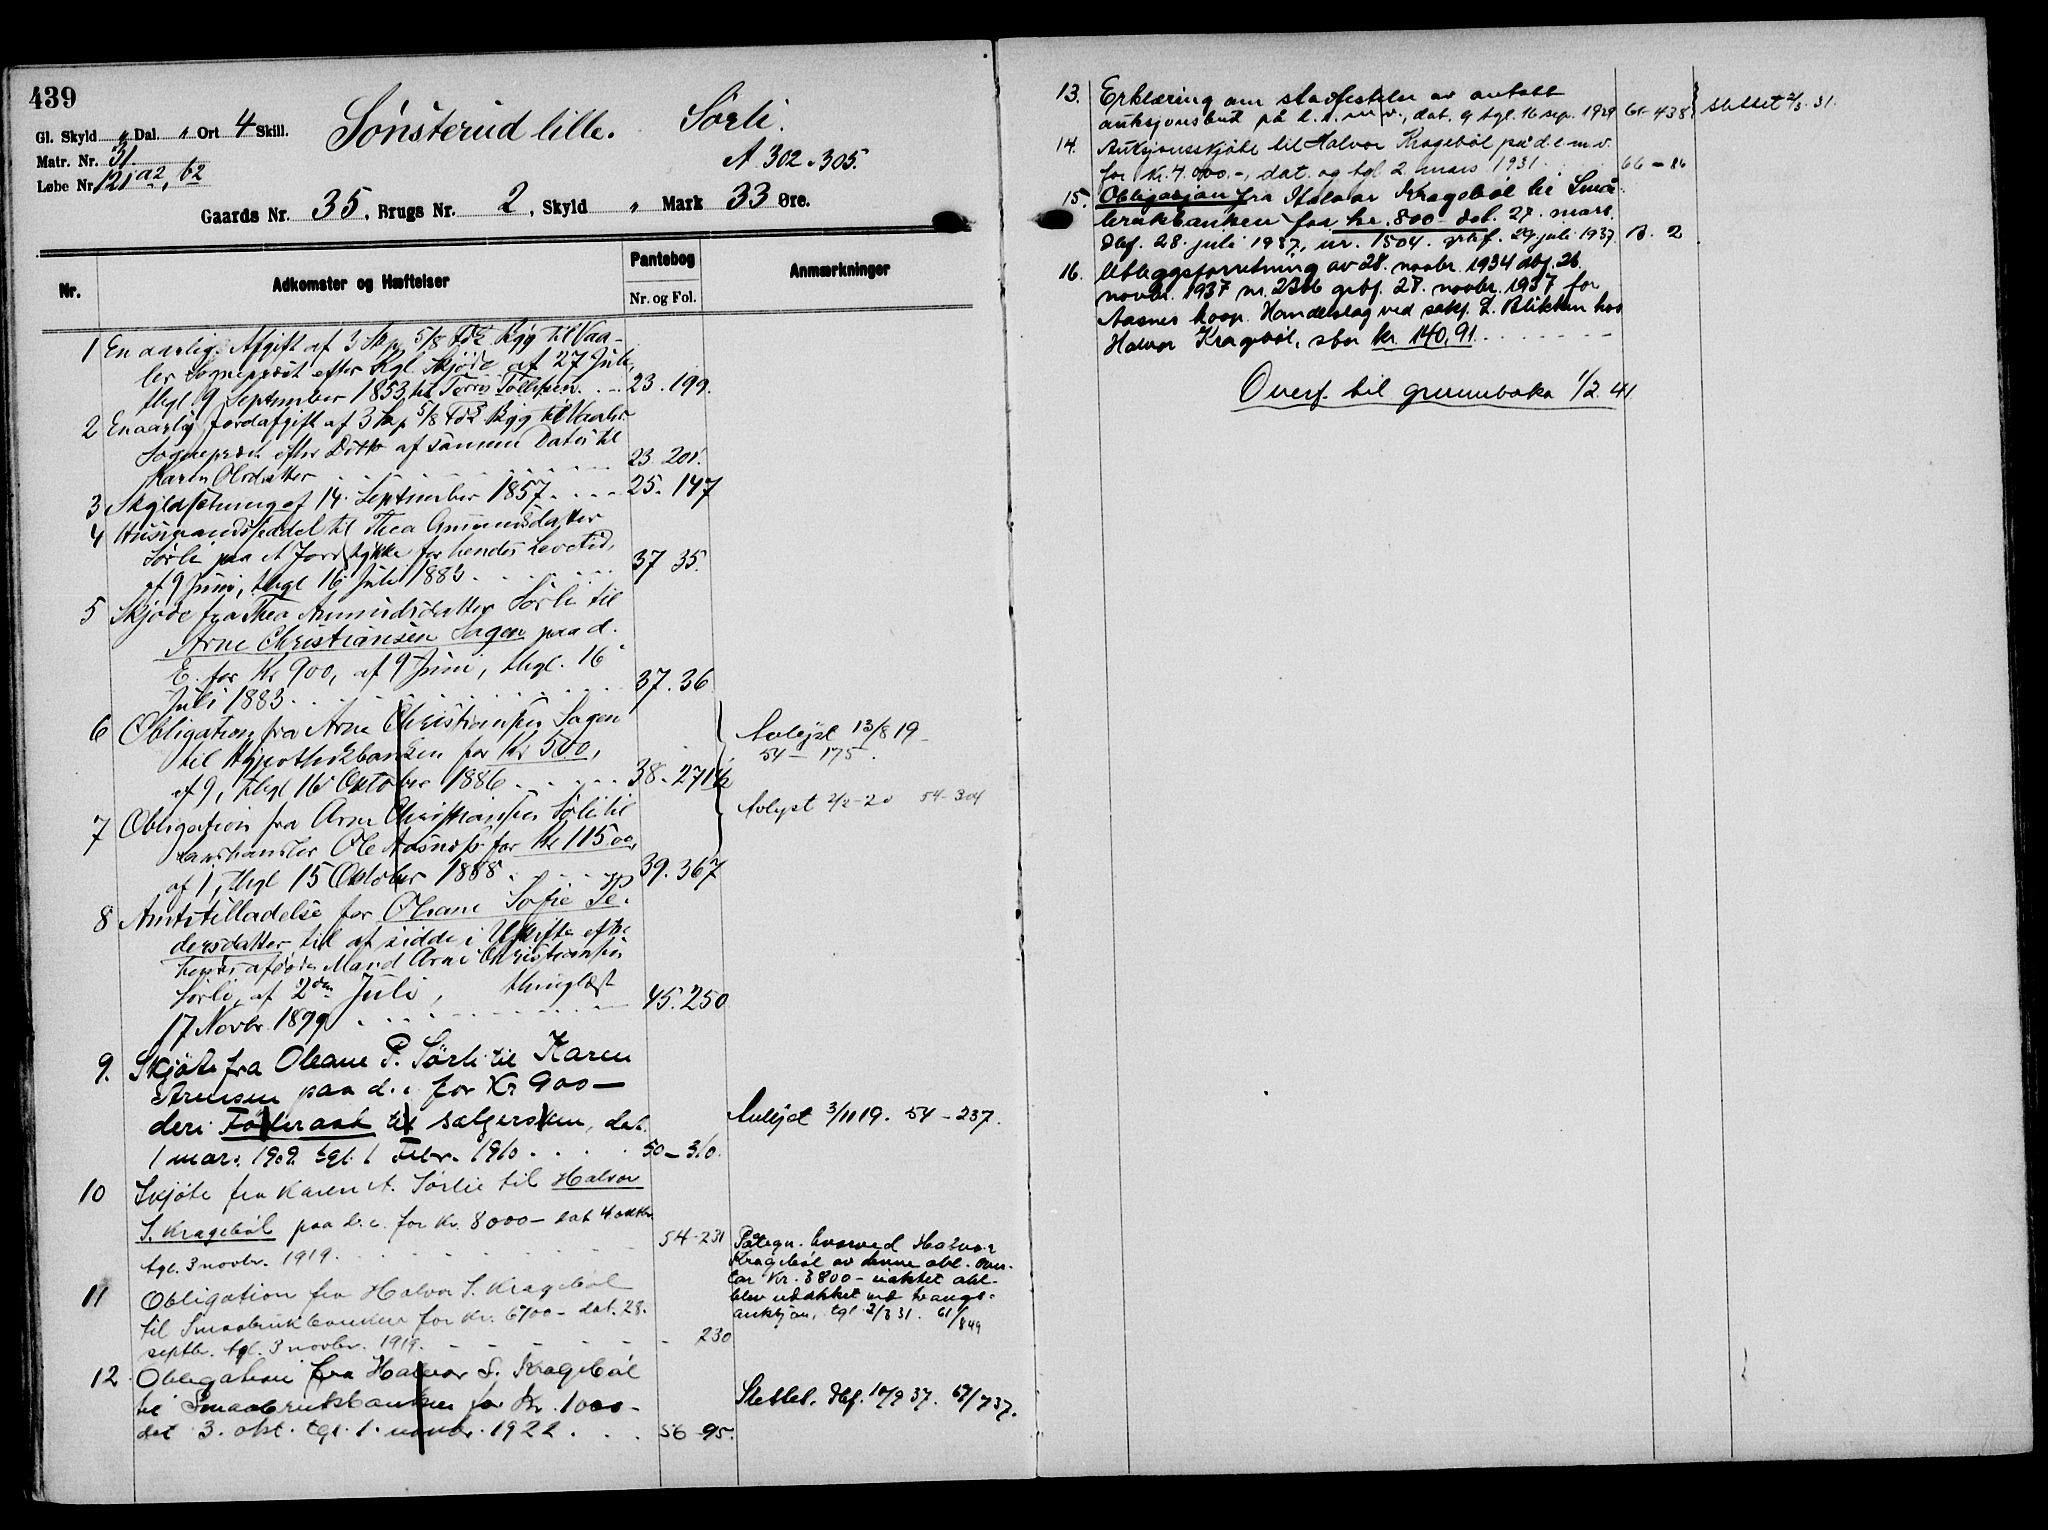 439
Gl. Skyld „ Dal. „ Ort 4 Skill.
Matr. Nr. 31.
Løbe Nr. 121 a2, b2
Sønsterud lille.
Sørli.
A 302 305.
Gaards Nr. 35, Brugs Nr. 2, Skyld „ Mark 33 Øre.
Nr.
Adkomster og Hæftelser
Pantebog
Nr. og Fol.
Anmærkninger
1 En aarlig Afgift af 3 Skp 5/8 Fdk Byg til Vaa-
ler Sognepræst efter Kgl. Skjøde af 27 Juli,
thgl 9 September 1853, til Torris Tollefsen 23. 199.
2 En aarlig Jordafgift af 3 Skp 5/8 Fdk Byg til Vaaler
Sognepræst efter Ditto af samme Dato til
Karen Olsdatter 23 201.
3 Skyldsetning af 14. September 1857. 25. 147
4 Husmandsseddel til Thea Amundsdatter
Sørli paa et Jordstykke for hendes Levetid,
af 9 Juni, thgl 16 Juli 1883 37 35.
5 Skjøde fra Thea Amundsdatter Sørli til
Arne Christiansen Sagen paa d.
E. for Kr 900, af 9 Juni, thgl. 16
Juli 1883 37. 36
6 Obligation fra Arne Christiansen Sagen
til Hypothekbanken for Kr 500,
af 9, thgl 16 Oktober 1886 38. 271 1/2
Avlyst 13/8 19
54 – 175.
7 Obligation fra Arne Christiansen Sørli til
Ole Aasnes for Kr 115.00,
af 1, thgl 15 Oktober 1888 39. 367
Avlyst 2/2-20 54-304
8 Amtstilladelse for Oleane Sofie Pe-
dersdatter til at sidde i Uskifte efter
hendes afdøde Mand Arne Christiansen
Sørli, af 2den Juli, thinglæst
17 Novbr. 1899 45. 250
9. Skjøte fra Oleane P. Sørli til Karen
Arnesen paa d. e. for Kr 900 –
deri Føderaad til sælgersken, dat.
1 mars 1909. tgl. 1 Febr. 1910 50 – 310.
Avlyst 3/11 19. 54 – 237.
10 Skjøte fra Karen A. Sørlie til Halvor
S. Kragebøl paa d. e. for Kr. 8000 – dat 4 oktbr
tgl. 3 novbr. 1919. 54-231
11 Obligation fra Halvor S. Kragebøl
til Smaabrukbanken for Kr. 6700 – dat. 28.
septbr. tgl. 3 novbr. 1919. – 230
Påtegn. hvorved Halvor
Kragebøl av denne obl. over-
tar Kr. 3800 – uaktet obl.
blev udækket ved tvangs-
auksjon, tgl 2/3 31. 61/849
12 Obligation fra Halvor S. Kragebøl
til Smaabrukbanken for Kr. 1000 –
dat 3. okt. tgl. 1. novbr. 1922. 56 – 95.
Slettet. dbf. 10/9 37. 69/737.
13. Erklæring om stadfestelse av antatt
auksjonsbud på d. e. m v., dat. 9 tgl. 16 sep. 1929 61-438
Slettet 2/3. 31.
14. Auksjonsskjøte til Halvor Kragebøl på d. e. m. v.
for Kr. 4.000.–, dat. og tgl 2. mars 1931 66 – 86
15. Obligasjon fra Halvor Kragebøl til Små-
brukbanken for kr. 800 dat. 27. mars.
dbf. 28. juli 1937, nr. 1504. grbf. 29 juli 1937. B. 2
16. Utleggsforretning av 28. novbr. 1934 dbf. 26.
novbr. 1937 nr. 2306 grbf. 27. novbr. 1937 for
Aasnes koop. Handelslag ved sakf. L. Blikken hos
Halvor Kragebøl, stor kr. 140,91.
Overf. til grunnboka 1/2. 41